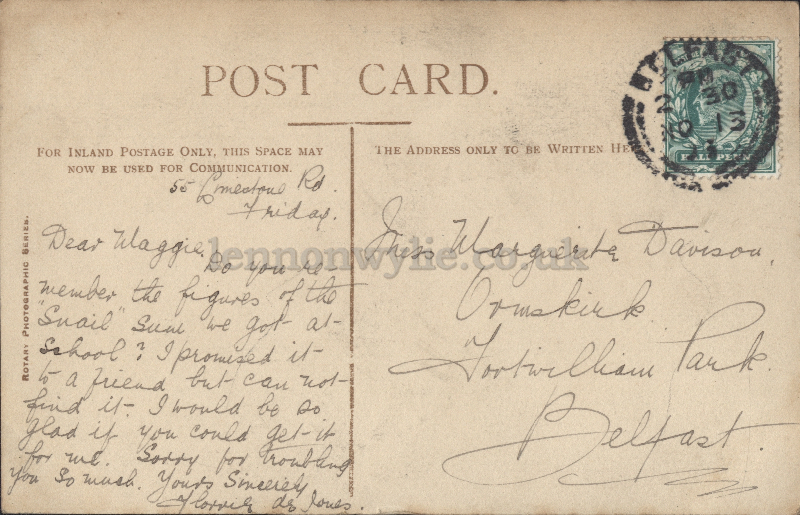 POST CARD.
FOR INLAND POSTAGE ONLY, THIS SPACE MAY
NOW BE USED FOR COMMUNICATION.
THE ADDRESS ONLY TO BE WRITTEN HE
BELFAST
2 30
10 13
HALFPENNY
55 Limestone Rd.
Friday.
Dear Maggie,
Do you re-
member the figures of the
"Snail" sum we got at
School? I promised it
to a friend but can not
find it. I would be so
glad if you could get it
for me. Sorry for troubling
you so much. Yours Sincerely
Florrie de Jones.
Miss Marguerite Davison,
Ormskirk
Fortwilliam Park.
Belfast.
ROTARY PHOTOGRAPHIC SERIES.
lennonwylie.co.uk